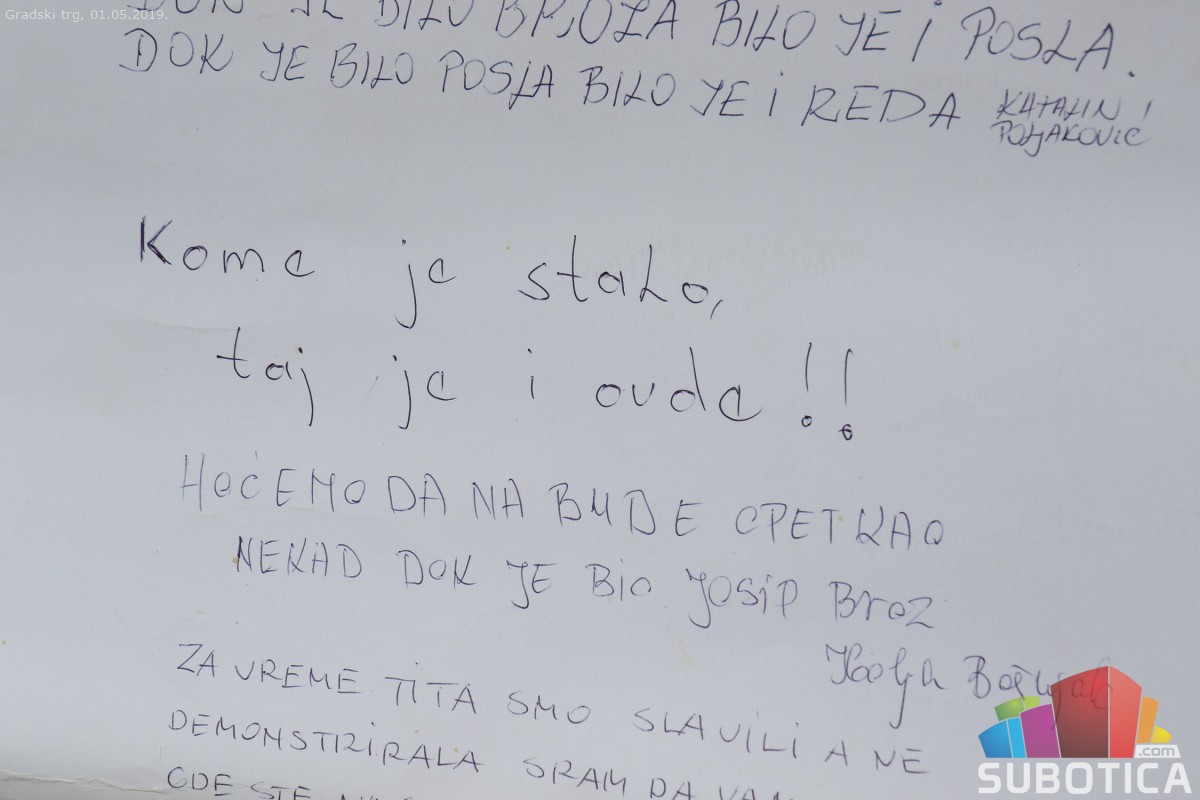 Gradski trg, 01.05.2019.
DOK JE BILO BROZA BILO JE I POSLA.
DOK JE BILO POSLA BILO JE I REDA KATALIN I
POLJAKOVIĆ
Kome je stalo,
taj je i ovde!!
HOĆEMO DA NA BUDE OPET KAO
NEKAD DOK JE BIO JOSIP Broz
ZA VREME TITA SMO SLAVILI A NE
DEMONSTRIRALA SRAM DA VAM
GDE STE
.com
SUBOTICA